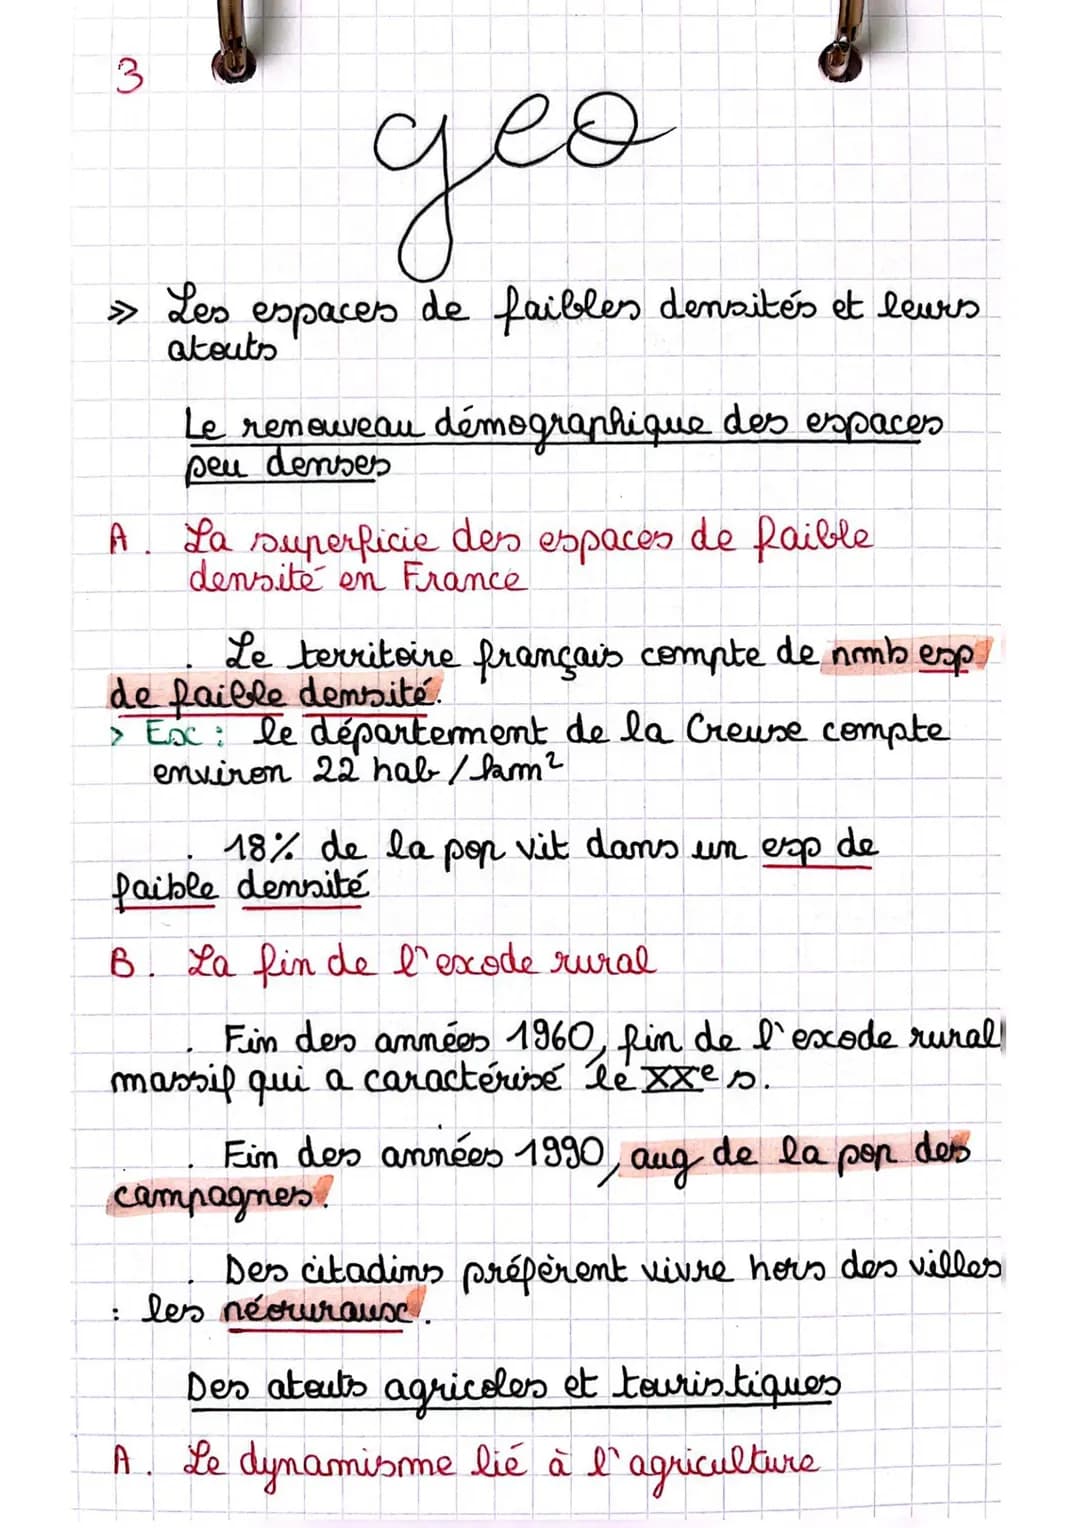 3
geo
» Les espaces de faibles densités et leurs
atouts
Le renouveau démographique des espaces
peu denses
A. La superficie des espaces de faible
densité en France
. Le territoire français compte de nmb esp
de faible densité.
> Ex : le département de la Creuse compte
environ 22 hab / km²
. 18% de la pop vit dans un esp de
faible densité
B. La fin de l'exode rural
. Fin des années 1960, fin de l'exode rural
massif qui a caractérisé le XXe s.
. Fin des années 1990, aug de la pop des
campagnes.
. Des citadins préfèrent vivre hors des villes
: les néoruraux.
Des atouts agricoles et touristiques
A. Le dynamisme lié à l'agriculture